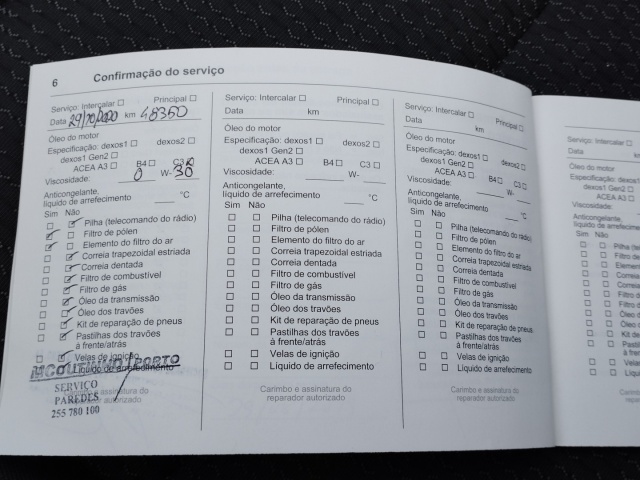 6 Confirmação do serviço
Serviço: Intercalar ☐ Principal ☐
Data 29/10/2020 km 48350
Óleo do motor
Especificação: dexos1 ☐ dexos2 ☐
dexos1 Gen2 ☐
ACEA A3 ☐ B4 ☐ C3 ☒
Viscosidade: 0 W- 30
Anticongelante,
líquido de arrefecimento ____ °C
Sim Não
Pilha (telecomando do rádio)
Filtro de pólen
Elemento do filtro do ar
Correia trapezoidal estriada
Correia dentada
Filtro de combustível
Filtro de gás
Óleo da transmissão
Óleo dos travões
Kit de reparação de pneus
Pastilhas dos travões
à frente/atrás
Velas de ignição
Líquido de arrefecimento
MCOUTINHO PORTO
SERVIÇO
PAREDES
255 780 100
assinatura do
reparador autorizado
Serviço: Intercalar ☐ Principal ☐
Data km
Óleo do motor
Especificação: dexos1 ☐ dexos2 ☐
dexos1 Gen2 ☐
ACEA A3 ☐ B4 ☐ C3 ☐
Viscosidade: ____ W- ____
Anticongelante,
líquido de arrefecimento ____ °C
Sim Não
Pilha (telecomando do rádio)
Filtro de pólen
Elemento do filtro do ar
Correia trapezoidal estriada
Correia dentada
Filtro de combustível
Filtro de gás
Óleo da transmissão
Óleo dos travões
Kit de reparação de pneus
Pastilhas dos travões
à frente/atrás
Velas de ignição
Líquido de arrefecimento
Carimbo e assinatura do
reparador autorizado
Serviço: Intercalar ☐ Principal ☐
Data km
Óleo do motor
Especificação: dexos1 ☐ dexos2 ☐
dexos1 Gen2 ☐
ACEA A3 ☐ B4 ☐ C3 ☐
Viscosidade: ____ W- ____
Anticongelante,
líquido de arrefecimento ____ °C
Sim Não
Pilha (telecomando do rádio)
Filtro de pólen
Elemento do filtro do ar
Correia trapezoidal estriada
Correia dentada
Filtro de combustível
Filtro de gás
Óleo da transmissão
Óleo dos travões
Kit de reparação de pneus
Pastilhas dos travões
à frente/atrás
Velas de ignição
Líquido de arrefecimento
Carimbo e assinatura do
reparador autorizado
Serviço: Interca
Data
Óleo do motor
Especificação: d
dexos1
ACEA
Viscosidade:
Anticongelante,
líquido de arrefe
Sim Não
Pilha (te
Filtro de
Elemen
Correia
Correia
Filtro de
Filtro de
Óleo da
Óleo do
Kit de re
Pastilh
à frente
Velas
Líquid